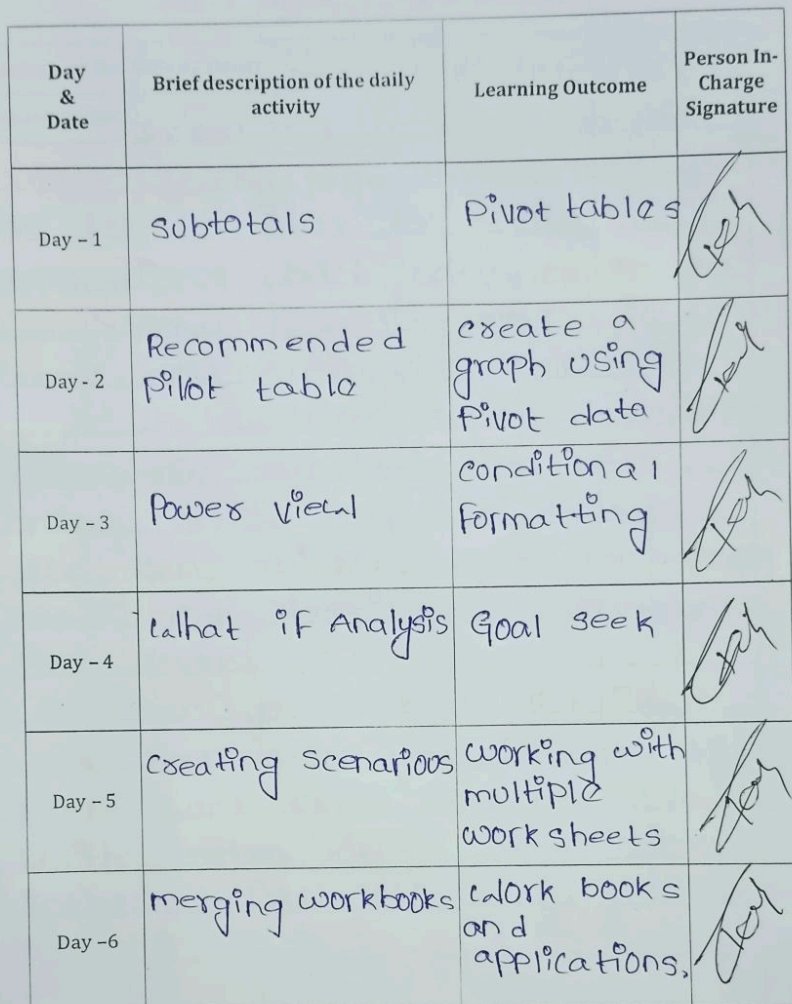 Day
&
Date
Brief description of the daily
activity
Learning Outcome
Person In-
Charge
Signature
Day – 1
Subtotals
Pivot tables
Day - 2
Recommended
Pivot table
create a
graph using
Pivot data
Day – 3
Power View
conditional
Formatting
Day – 4
What if Analysis
Goal seek
Day – 5
Creating Scenarious
working with
multiple
work sheets
Day –6
merging workbooks
Work books
and
applications.